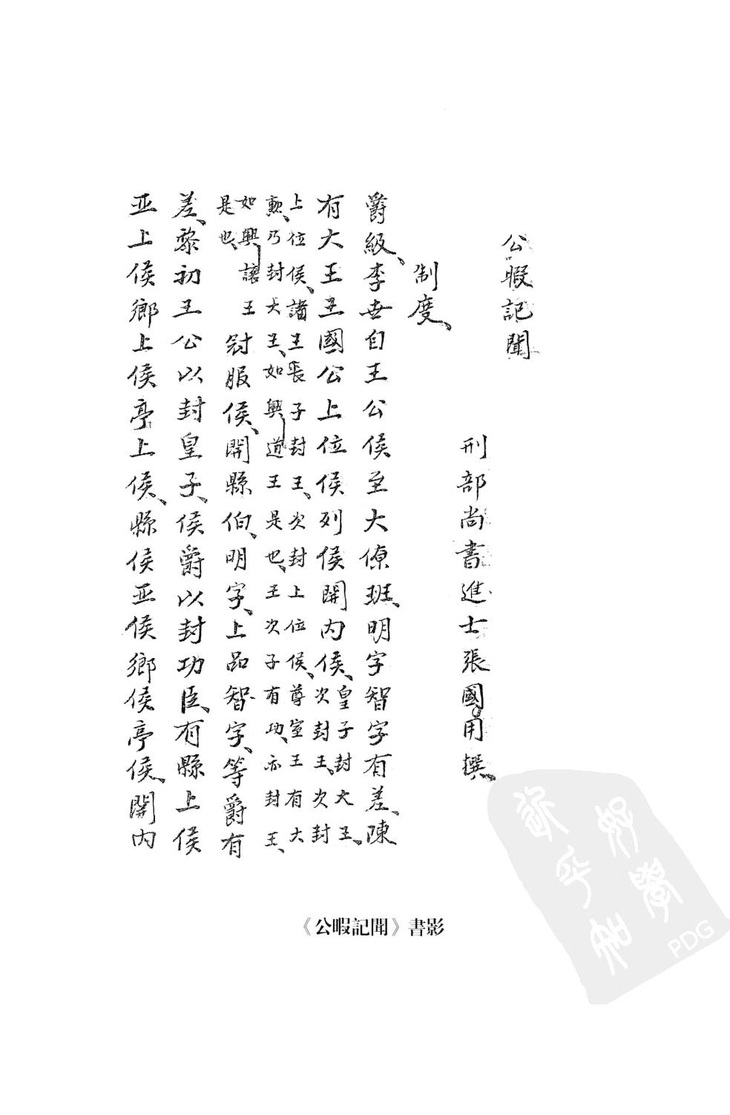 公暇記聞
刑部尚書進士張國用撰、
制度、
爵級、李世自王公侯至大僚班、明字智字有差、陳
有大王王國公上位侯列侯開內侯、
皇子封大王、
次封王、次封
上位侯、諸王長子封王、次封上位侯、尊室王有大
勲、乃封大王、如興道王是也、王次子有功、亦封王、
如興讓王
是也、
冠服侯、開縣伯、明字、上品智字、等爵有
差、黎初王公以封皇子、侯爵以封功臣、有縣上侯
亚上侯鄉上侯亭上侯、縣侯亚侯鄉侯亭侯、開內
《公暇記聞》書影
PDG